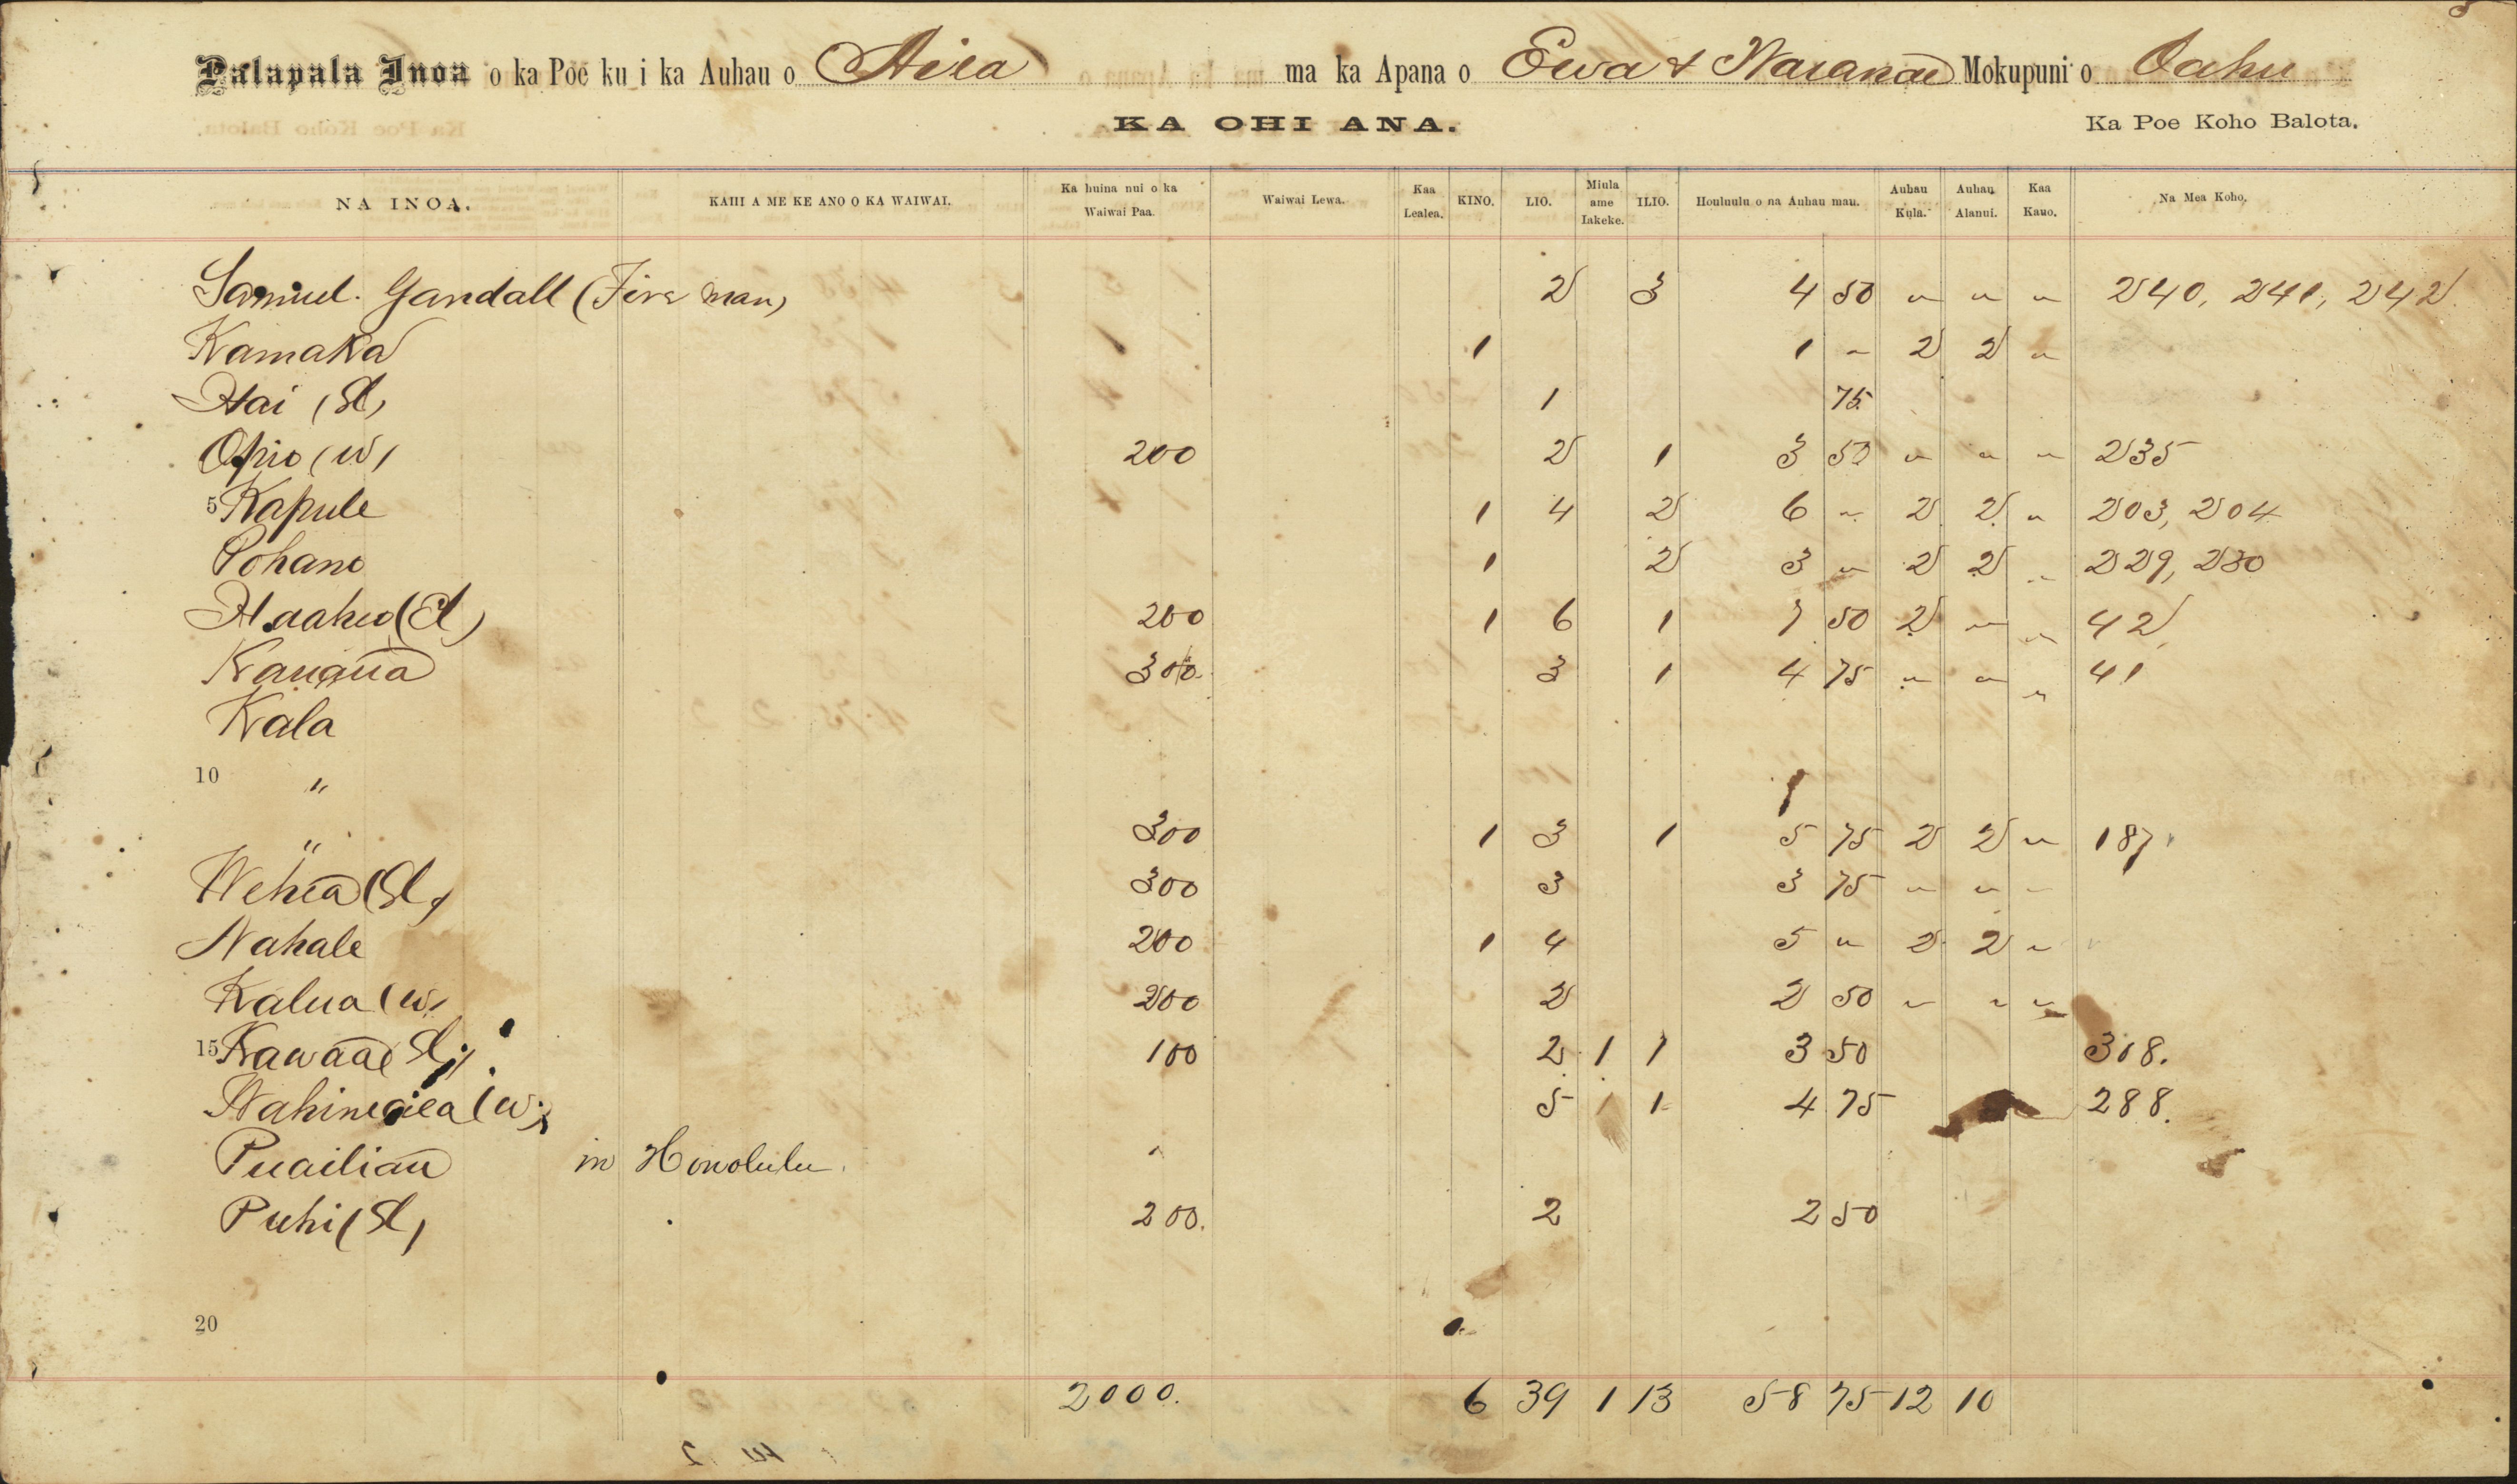 Palapala Inoa o ka Poe ku i ka Auhau o Aiea ma ka Apana o Ewa & Waianae Mokupuni o Oahu
KA OHI ANA.
Ka Poe Koho Balota.
NA INOA. KAHI A ME KE ANO O KA WAIWAI. Ka huina nui o ka Waiwai Paa. Waiwai Lewa. Kaa Lealea. KINO. LIO. Miula ame Iakeke. ILIO. Houluulu o na Auhau mau. Auhau Kula. Auhau Alanui. Kaa Kauo. Na Mea Koho.
Samuel. Gandall (Fire man) 2 3 4 50 " " " 240, 241, 242
Kamaka 1 1 " 2 2 "
Hai 1 75
Opio (w) 200 2 1 3 50 " " " 235
5 Kapule 1 4 2 6 " 2 2 " 203, 204
Pohano 1 2 3 " 2 2 " 229, 230
Haaheo 200 1 6 1 7 50 2 " " 42
Kanaua 300 3 1 4 75 " " " 41
Kala
10 "
" 300 1 3 1 5 75 2 2 " 187
Wehea 300 3 3 75 " " "
Nahale 200 1 4 5 " 2 2 "
Kalua (w) 200 2 2 50 " " "
15 Kawaae 100 2 1 1 3 50 308.
Wahineaiea (w) 5 1 4 75 288.
Puailiau in Honolulu.
Puhi 200. 2 2 50
20
2000. 6 39 1 13 58 75 12 10